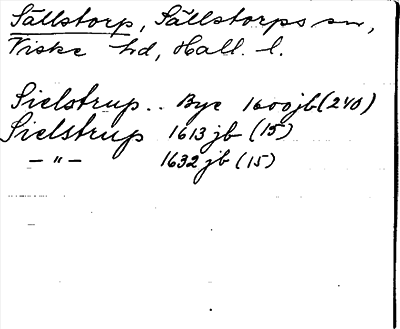 Sällstorp, Sällstorps sn,
Viske hd, Hall. l.
Sielstrup .. Bye 1600 jb (240)
Sielstrup 1613 jb (15)
— " — 1632 jb (15)